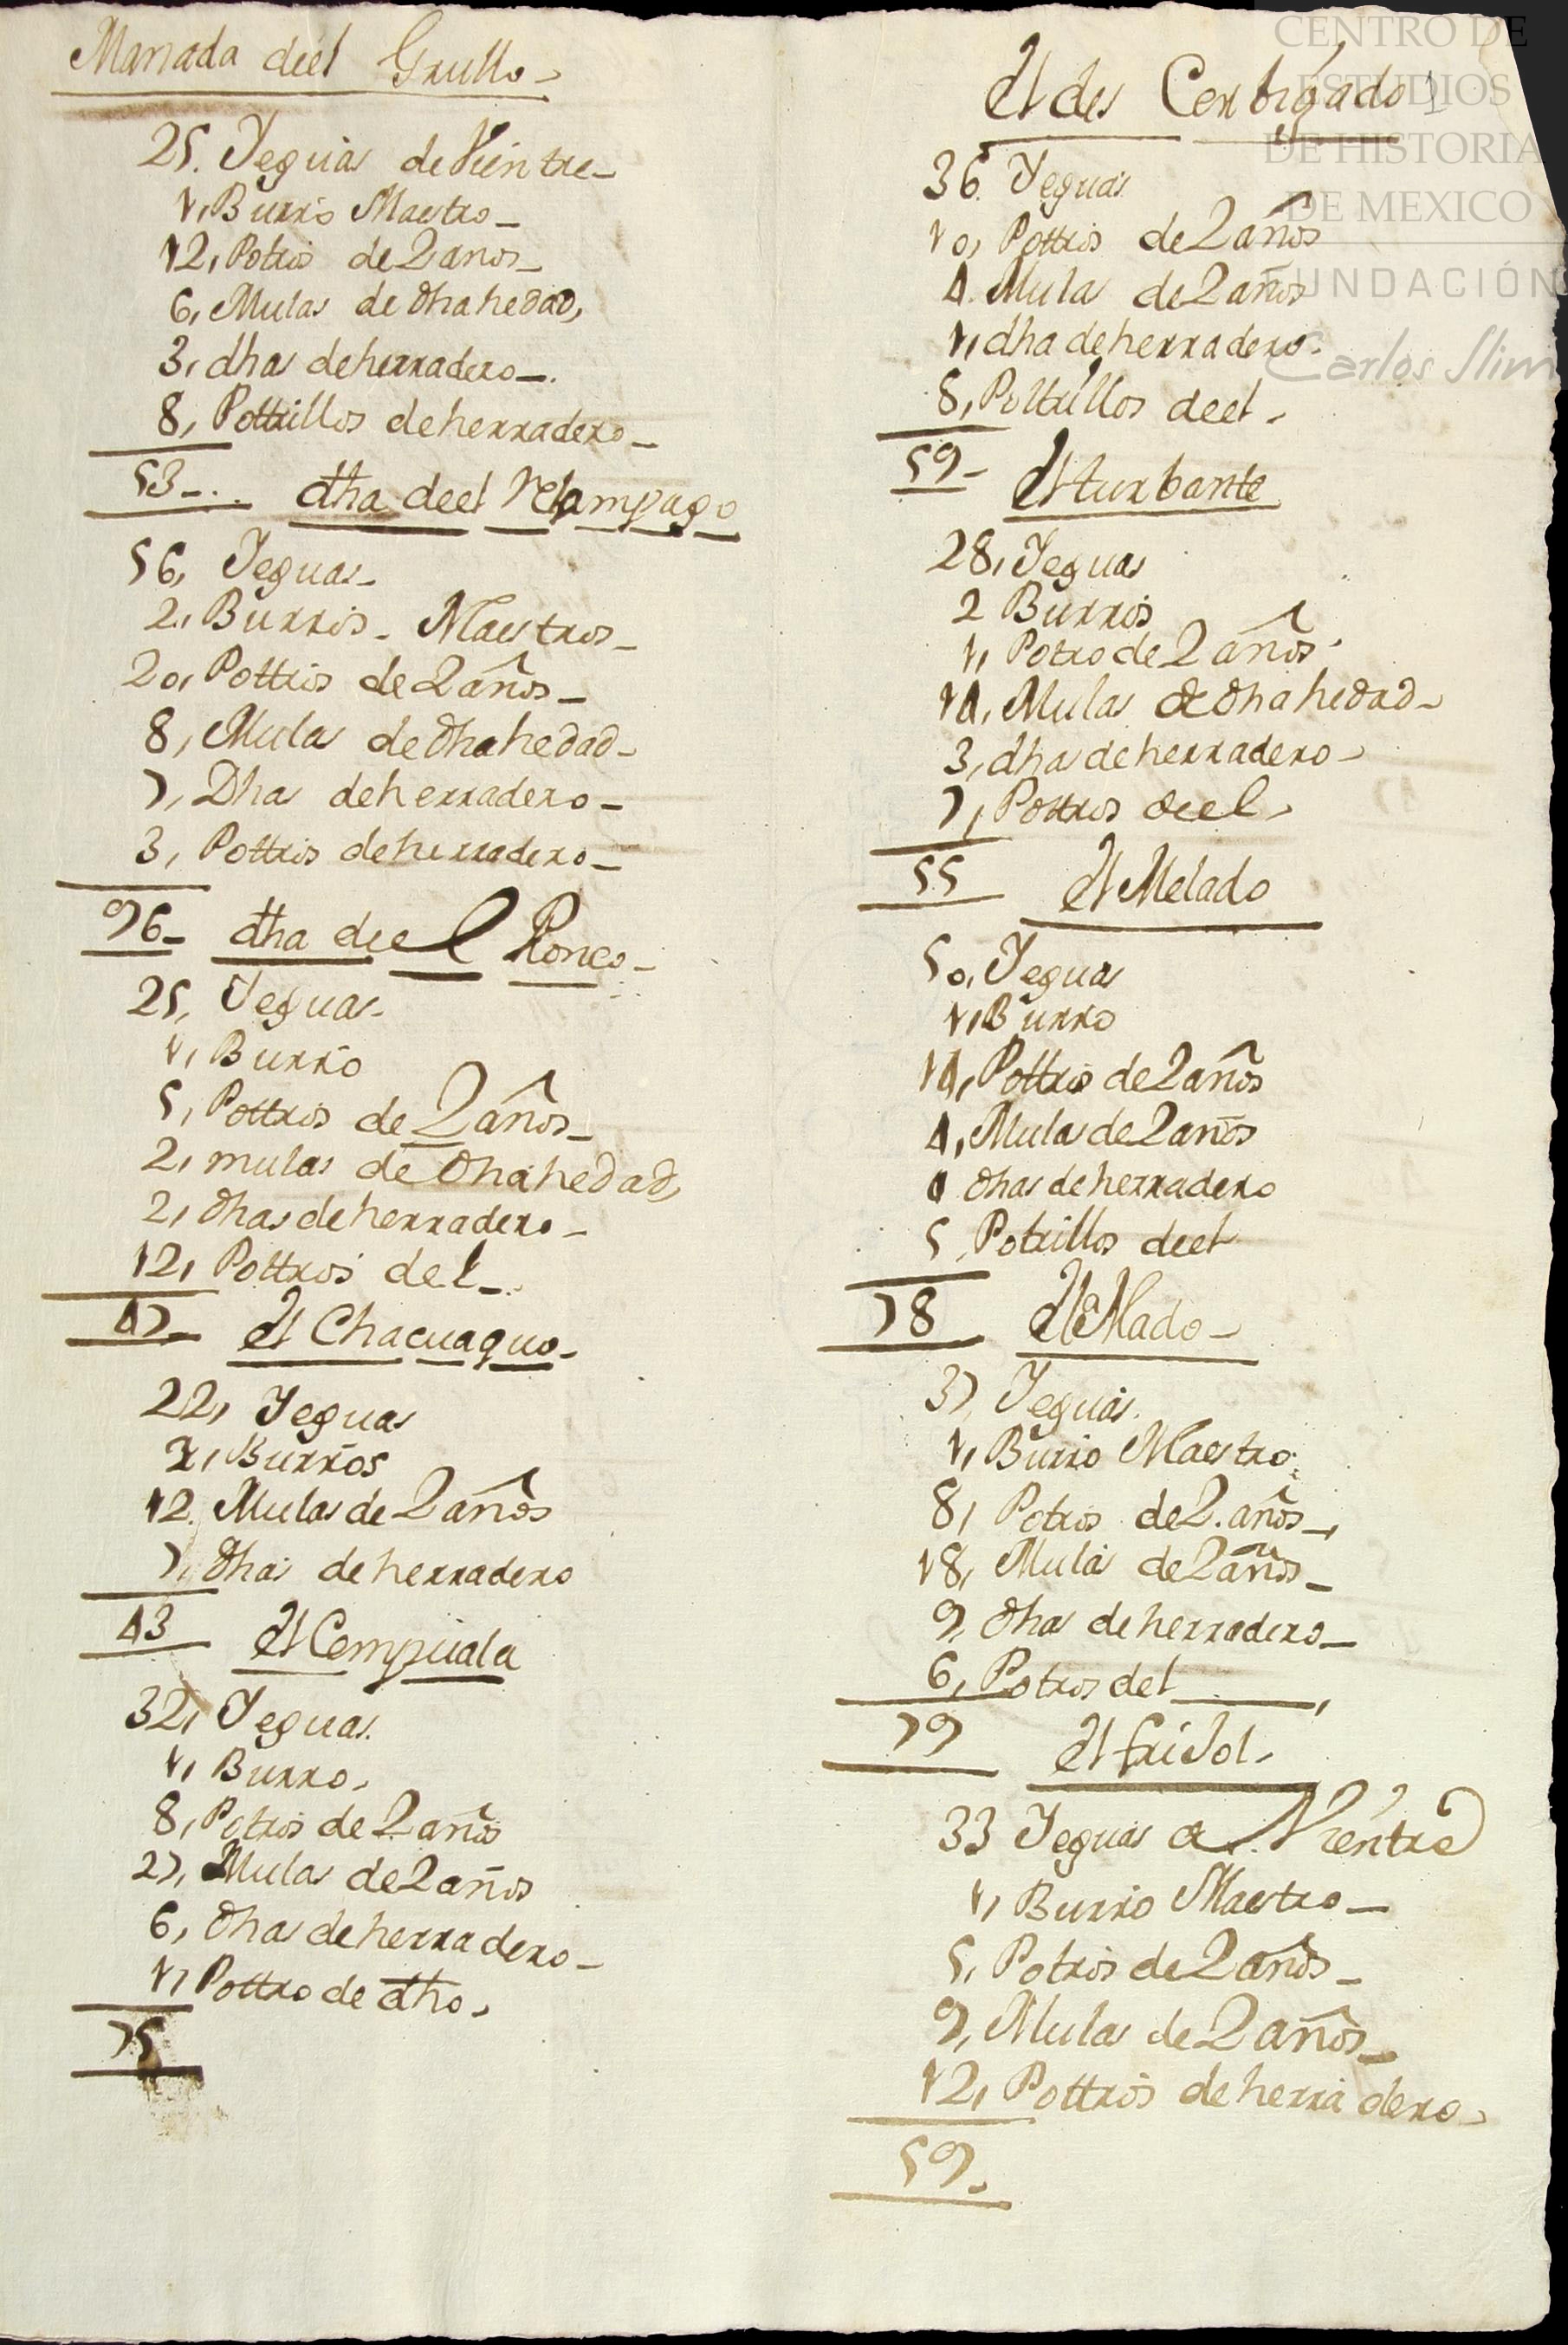 Manada deel Grullo
25. Yeguas de Vientre
1, Burro Maestro
12, Potros de 2 anos
6, Mulas de dha hedad,
3, dhas de herradero
8, Pottrillos de herradero
53 dha deel Relampago
56, Yeguas
2, Burros Maestros
20, Pottros de 2 años
8, Mulas de dha hedad
7, Dhas de herradero
3, Pottros de herradero
96 dha deel Ronco
25, Yeguas
1, Burro
5, Pottros de 2 años
2, mulas de dha hedad
2, dhas de herradero
12, Pottros del
47 El Chacuaquo
22, Yeguas
2, Burros
12. Mulas de 2 años
7, dhas de herradero
43 El Compuala
32, Yeguas.
1, Burro
8, Potros de 2 años
27, Mulas de 2 años
6, dhas de herradero
1, Pottro de dho
75
El des Cerbigado 1
36. Yeguas
10, Pottros de 2 años
4. Mulas de 2 años
1, dha de herradero
8, Pottrillos deel
59 El turbante
28, Yeguas
2 Burros
1, Potro de 2 años
14, Mulas de dha hedad
3, dhas de herradero
7, Pottros deel
55 El Melado
50, Yeguas
1, Burro
14, Pottros de 2 años
4, Mulas de 2 años
4 dhas de herradero
5, Potrillos deel
78
37, Yeguas.
1, Burro Maestro
8, Potros de 2. años
18, Mulas de 2 años
9, dhas de herradero
6, Potros del
79 El frisol
33 Yeguas a Vientre
1, Burro Maestro
5, Potros de 2 años
9, Mulas de 2 años
12, Pottros de herradero
59
CENTRO DE
ESTUDIOS
DE HISTORIA
DE MEXICO
FUNDACIÓN
Carlos Slim